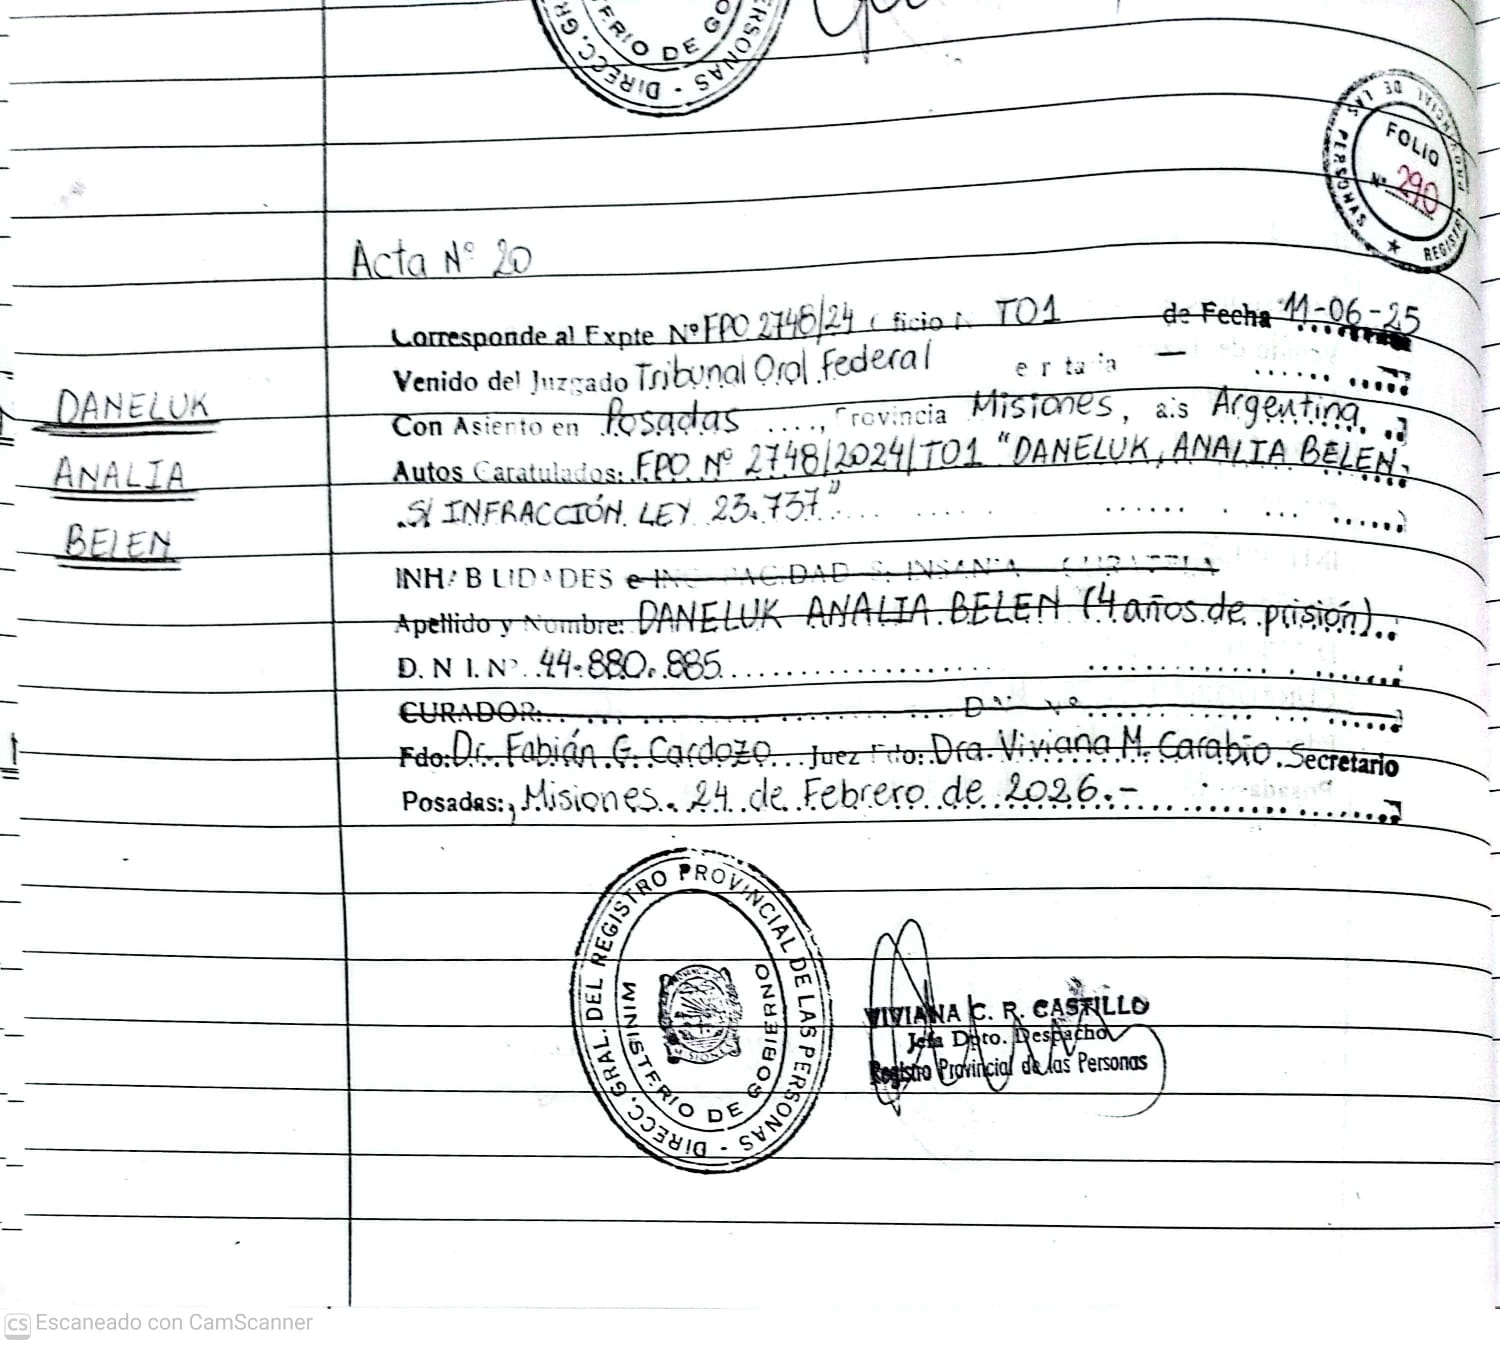 DIRECC. GR
PERSONAS
ERIO DE GO
REGISTR PROVINCIAL DE LAS PERSONAS
FOLIO
Nº 290
Acta Nº 20
DANELUK
ANALIA
BELEN
Corresponde al Expte Nº FPO 2748/24 ficio N TO1 de Fecha 11-06-25
Venido del Juzgado Tribunal Oral Federal e r ta ia —
Con Asiento en Posadas ...., Provincia Misiones, ais Argentina.
Autos Caratulados: FPO Nº 2748/2024/TO1 "DANELUK, ANALIA BELEN.
S/ INFRACCIÓN LEY 23.737"
INHABILIDADES e INC PACIDAD S. INSANIA CURATELA
Apellido y Nombre: DANELUK ANALIA BELEN (4 años de prisión)
D. N I. Nº 44.880.885
CURADOR: D Nº
Fdo: Dr. Fabián G. Cardozo Juez Fdo: Dra. Viviana M. Carabio. Secretario
Posadas:, Misiones. 24 de Febrero de 2026.-
DIRECC. GRAL. DEL REGISTRO PROVINCIAL DE LAS PERSONAS
MINISTERIO DE GOBIERNO
MISIONES
VIVIANA C. R. CASTILLO
Jefa Dpto. Despacho
Registro Provincial de las Personas
CS Escaneado con CamScanner